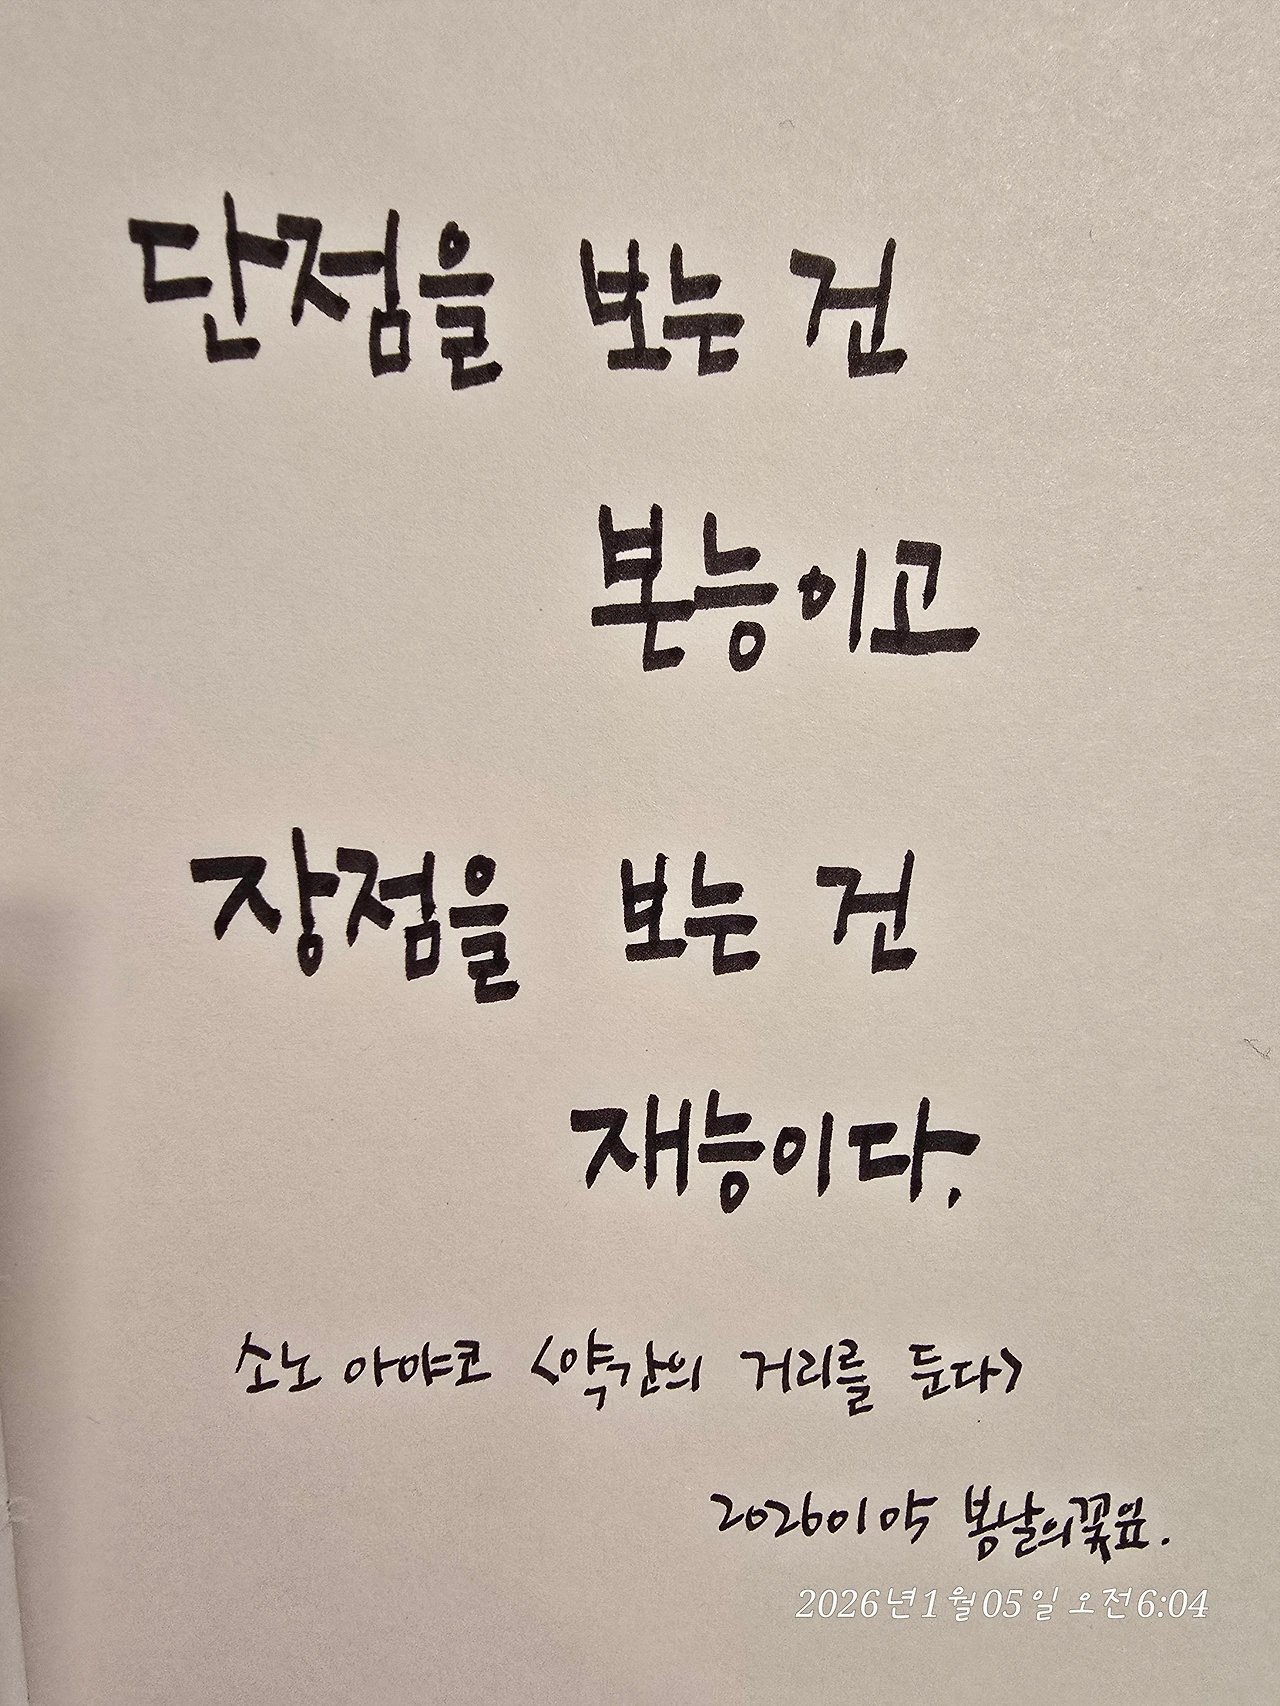 단점을 보는 건
본능이고
장점을 보는 건
재능이다.
소노 아야코 <약간의 거리를 둔다>
20260105 봄날의꽃잎.
2026년1월05일 오전6:04